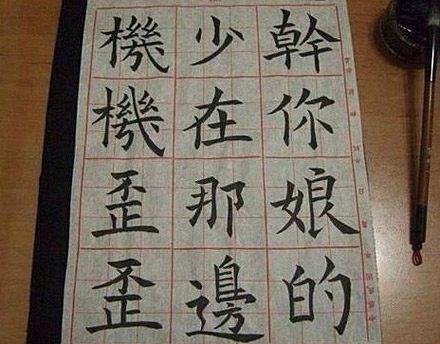 幹你娘的
少在那邊
機機歪歪